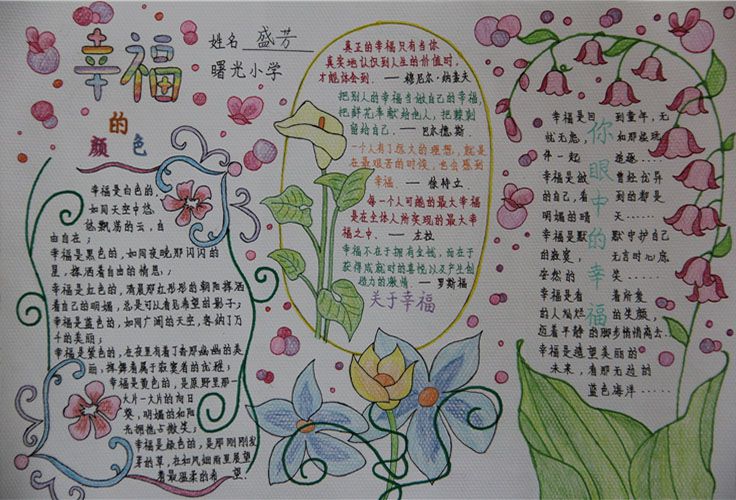 幸福
的
颜色
姓名 盛芳
曙光小学
幸福是白色的,
如同天空中悠
悠飘荡的云,自
由自在;
幸福是黑色的,如同夜晚那闪闪的
星,挥洒着自由的情思;
幸福是红色的,清晨那红彤彤的朝阳挥洒
着自己的明媚,总是可以看见希望的影子;
幸福是蓝色的,如同广阔的天空,容纳了万
千的美丽;
幸福是紫色的,在夜里有着丁香那幽幽的美
丽,挥舞着属于寂寞者的优雅;
幸福是黄色的,是原野里那一
大片一大片的向日
葵,明媚的如阳
光拥抱占微笑;
幸福是绿色的,是那刚刚发
芽的草,在和风细雨里展望
着最温柔的希望.
真正的幸福只有当你
真实地认识到人生的价值时,
才能体会到.——穆尼尔·纳素夫
把别人的幸福当做自己的幸福,
把鲜花奉献给他人,把棘刺
留给自己.——巴尔德斯.
一个人有了远大的理想,就是
在最艰苦的时候,也会感到
幸福.——徐特立.
每一个人可能的最大幸福
是在全体人所实现的最大幸
福之中.——左拉
幸福不在于拥有金钱,而在于
获得成就时的喜悦以及产生创
造力的激情.——罗斯福
关于幸福
你眼中的幸福
幸福是回 到童年,无
忧无虑, 如那些玩
伴一起 追逐......
幸福是做 曾经优异
的自己,看 到的都是
明媚的晴 天......
幸福是默 默守护自己
的寂寞, 无言时心底
安然的 笑......
幸福是看 着所爱
的人灿烂 的笑颜,
迈着平静的脚步悄悄离去..
幸福是遥望美丽的
未来,看那无边的
蓝色海洋......